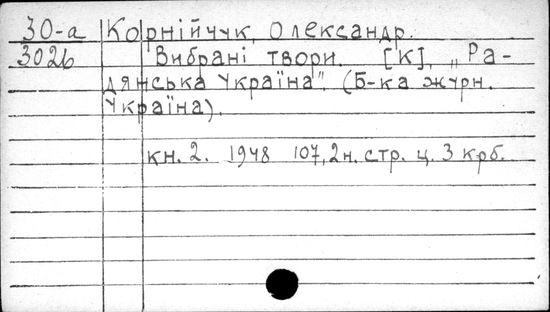 30-а Корнійчук, Олександр.
3026 Вибрані твори. [К], „Ра-
дянська Україна". (Б-ка журн.
Україна).
кн. 2. 1948 107, 2 н. стр. ц. 3 крб.